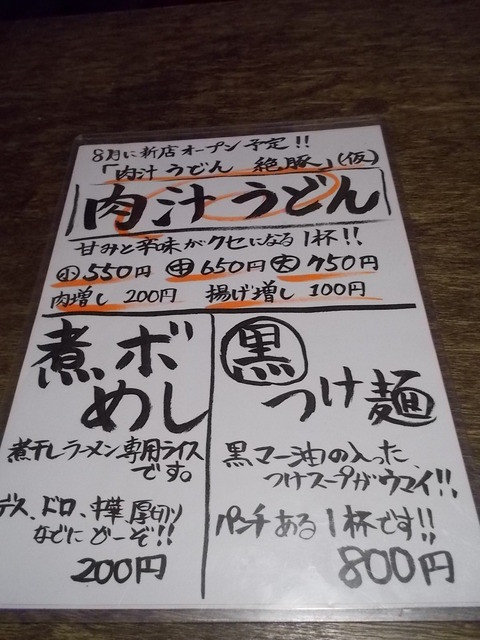 8月に新店オープン予定!!
「肉汁うどん 絶豚」(仮)
肉汁うどん
甘みと辛味がクセになる1杯!!
小550円 中650円 大750円
肉増し 200円 揚げ増し 100円
煮ボ
めし
煮干しラーメン専用ライス
です。
デス、ドロ、中華、厚切り
などにどーぞ!!
200円
黒
つけ麺
黒マー油の入った
つけスープがウマイ!!
パンチある1杯です!!
800円